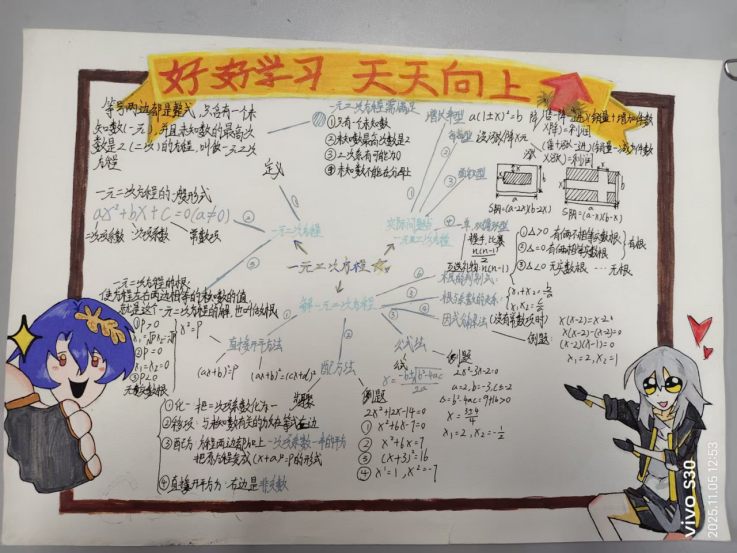 好好学习 天天向上
等号两边都是整式，只含有一个未
知数(一元)，并且未知数的最高次
数是2(二次)的方程，叫做一元二次
方程
定义
一元二次方程需满足
①只有一个未知数
②未知数最高次数是2
③二次系数不可能为0
④未知数不能在分母上
一元二次方程的一般形式
ax²+bx+c=0(a≠0)
二次项系数 一次项系数 常数项
一元二次方程
一元二次方程的根
使方程左右两边相等的未知数的值
就是这个一元二次方程的解，也叫做根
增长率型 a(1±x)²=b
面积型
S阴=(a-2x)(b-2x)
S阴=(a-x)(b-x)
实际问题与
一元二次方程
n(n-1)
2
互送礼物:n(n-1)
①△>0 有两个不相等实数根
②△=0 有两个相等实数根
有根
③△<0 无实数根 … 无根
一元二次方程
解一元二次方程
根的判别式
根与系数的关系
x₁+x₂=-b/a
x₁x₂=c/a
因式分解法(没有常数项时)
例题:
x(x-2)=x-2
x(x-2)-(x-2)=0
(x-2)(x-1)=0
x₁=2,x₂=1
①P>0
②P=0
x₁=x₂=0
③P<0
无实数根
x²=P
直接开平方法
(ax+b)²=P
(ax+b)²=(cx+d)²
配方法
步骤
①化一:把二次项系数化为一
②移项:与未知数有关的放在等式左边
③配方:方程两边都加上一次项系数一半的平方
把方程变成(x+a)²=P的形式
④直接开平方:右边是非负数
例题
2x²+12x-14=0
① x²+6x-7=0
② x²+6x=7
③ (x+3)²=16
④ x¹=1,x²=-7
公式法
公式
x=-b±√b²-4ac
2a
例题
2x²-3x-2=0
a=2,b=-3,c=-2
△=b²-4ac=9+16>0
x=3±5/4
x₁=2,x₂=-1/2
vivo S30
2025.11.05 12:53